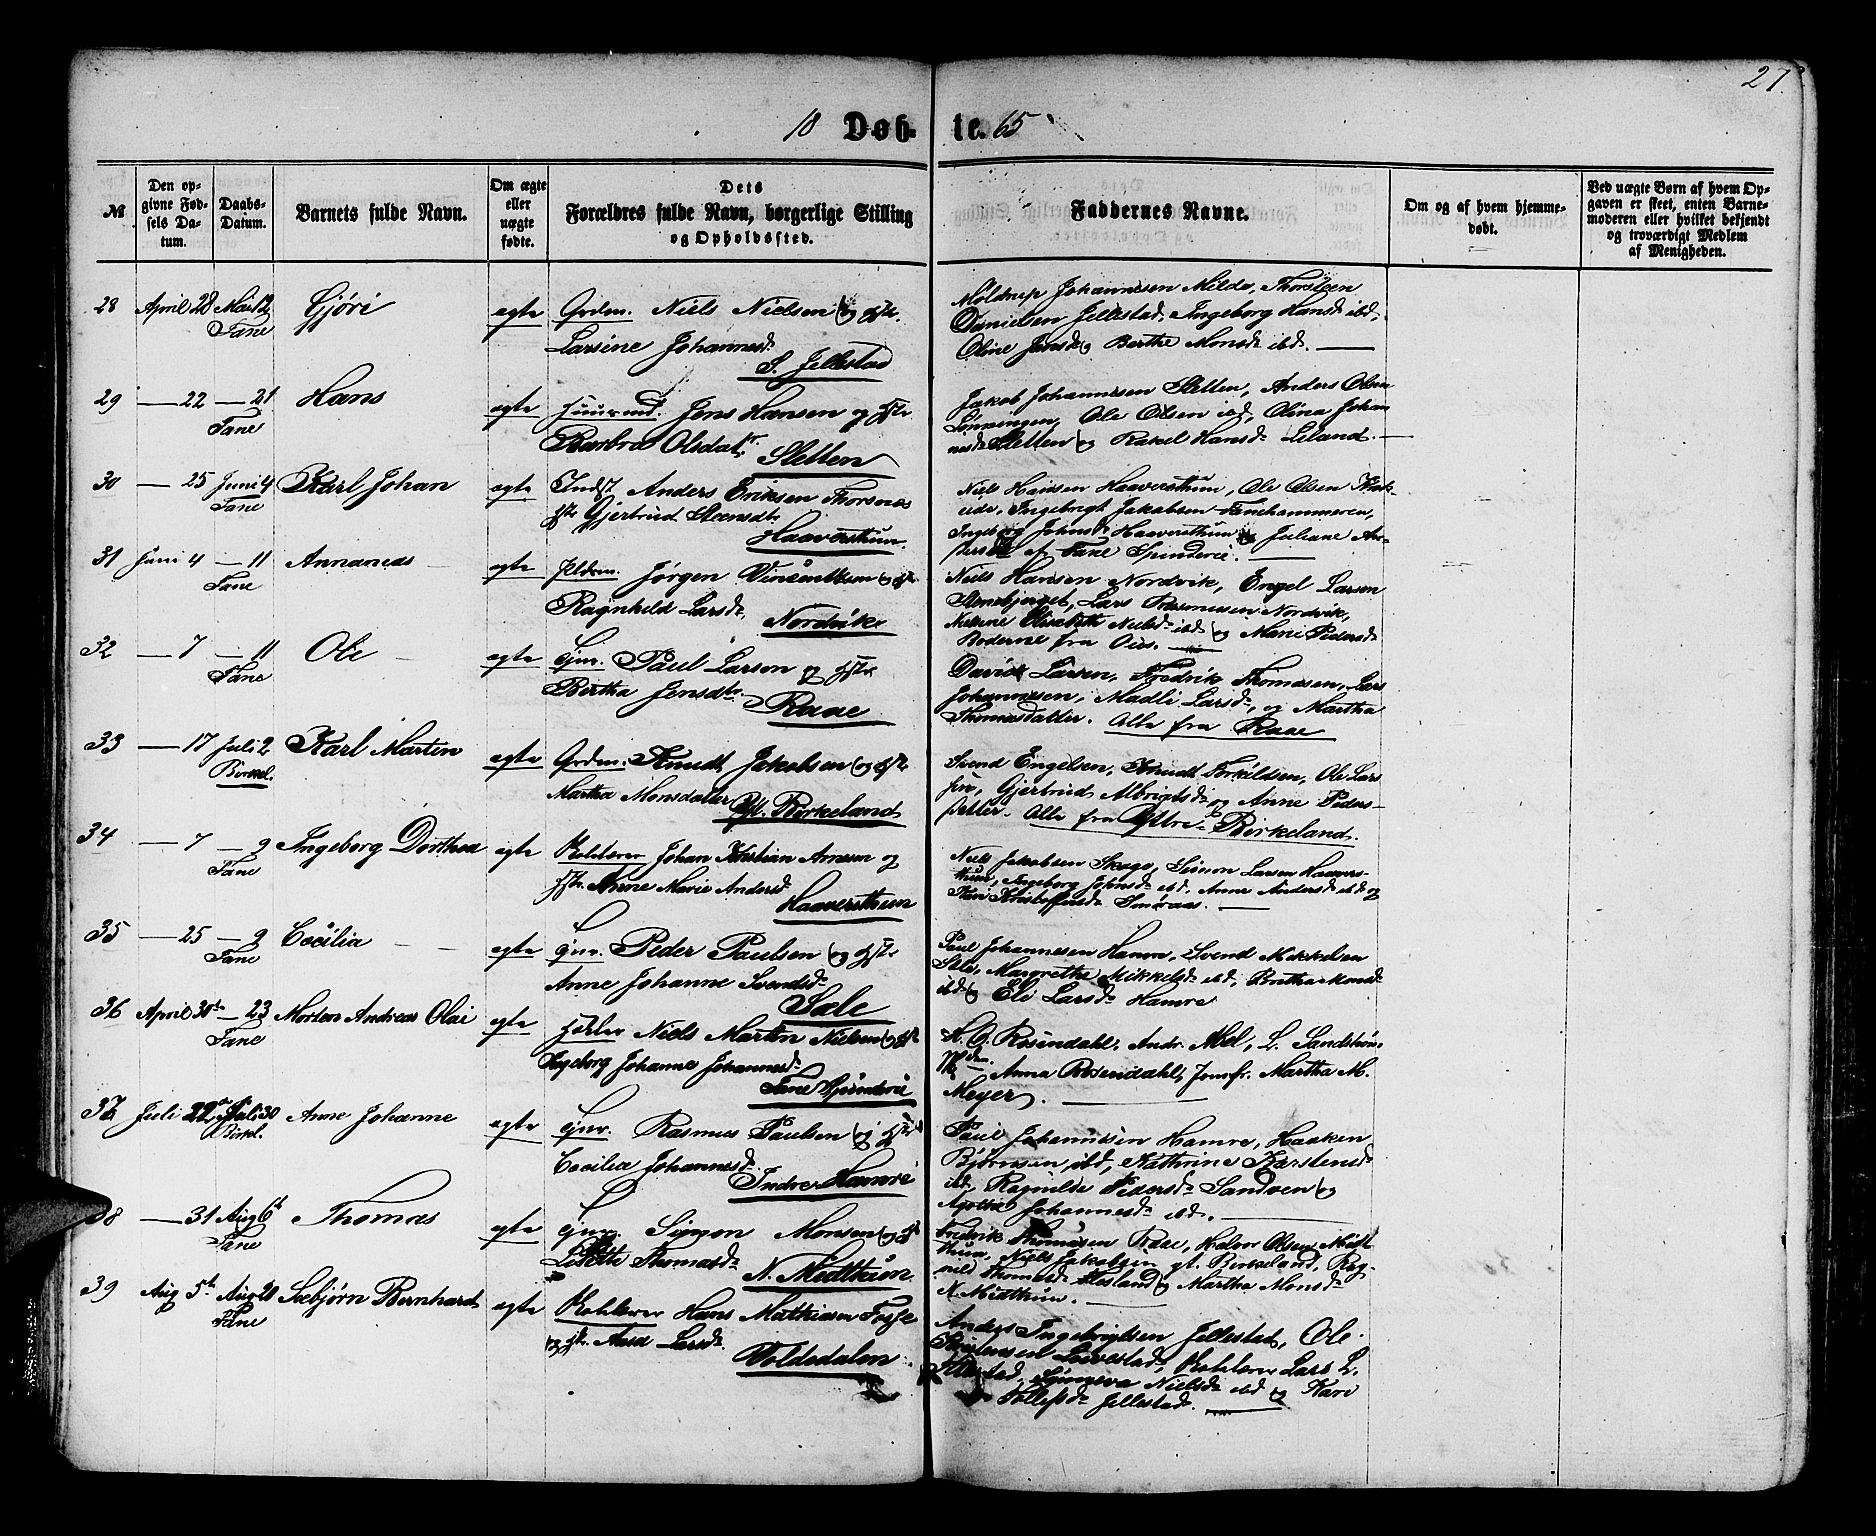 27.
18 Døb- te. 65
№
Den op-
givne Fød-
sels Da-
tum.
Daabs-
Datum.
Barnets fulde Navn.
Om ægte
eller
uægte
fødte.
Dets
Forældres fulde Navn, borgerlige Stilling
og Opholdssted.
Faddernes Navne.
Om og af hvem hjemme-
døbt.
Ved uægte Børn af hvem Op-
gaven er skeet, enten Barne-
moderen eller hvilket bekjendt
og troværdigt Medlem
af Menigheden.
28 April 28 Fane Gjøri ægte Grdm. Niels Nielsen og Hstr.
Larsine Johannesd.
S. Jellestad
Johannesen Milde, Thorsteen
Danielsen Jellestad, Ingeborg Hansd ibd,
Oline Jansd og Berthe Monsd ibd.
29 — 22 — 21 Fane Hans ægte Huusmd. Jens Hansen og Hstr
Barbra Olsdatr.
Sletten
Jakob Johannesen Sletten, Anders Olsen
Lønningen, Ole Olsen ibd, Olina Johan
nesd Sletten og Rakel Hansd Liland.
30 — 25 Juni 4 Fane Karl Johan ægte Indst Anders Eriksen Thorsnæs
Hstr Gjertrud Steensdtr
Haaversthun.
Niels Hansen Haaversthun, Ole Olsen Krok-
eide, Ingebrigt Jakobsen Fanehammeren,
Ingeborg Johnsd Haaversthun og Juliane An-
dersd af Fane Spinderie.
31 Juni 4 — 11 Fane Annaneas ægte Pldsm. Jørgen Vinsentsen og Hstr
Ragnhild Larsd.
Nordvik
Niels Hansen Nordvik, Engel Larsen
Stensbjerget, Lars Rasmusen Nordvik,
Nilsine Elisabeth Nielsd ibd og Marie Pedersd
Boderne fra Ous.
32 — 7 — 11 Fane Ole ægte Gm. Paul Larsen og Hstr
Bertha Jensdtr
Raae
David Larsen, Fredrik Thomasen, Lars
Johannesen, Madli Larsd, og Martha
Thomasdatter. Alle fra Raae
33 — 17 Juli 2 Birkel. Karl Martin ægte Grdm. Knudt Jakobsen og Hstr
Martha Monsdatter
Yt. Birkeland
Svend Engelsen, Knudt Torkildsen, Ole Lars
sen, Gjertrud Albrigtsd og Anne Peders-
datter. Alle fra Yttre Birkeland.
34 — 7 — 9 Fane Ingeborg Dorthea ægte Roldtærer Johan Kristian Arnesen og
Hstr. Anne Marie Andersd
Haaversthun
Niels Jakobsen Skage, Simon Larsen Haavers-
thun, Ingeborg Johnsd ibd, Anne Andersd ibd og
Kari Kristoffersd Smøraas.
35 — 25 — 9 Fane Cecilia ægte Gm. Peder Paulsen og Hstr
Anne Johanne Svendsd
Sæle
Paul Johannesen Hamre, Svend Mikkelsen
Sæle, Margretha Mikkelsd ibd, Brithe Monsd
ibd og Eli Larsd Hamre
36 April 30te — 23 Fane Morten Andreas Olai ægte Niels Martin Nielsen og Hstr
Ingeborg Johanne Johannesd
Fane Spinderie
Rosendahl, Andr. Mel, L. Sandström
Mdm. Anna Rosendahl, Jomfr. Martha M.
Meyer.
37 Juli 22 Juli 30 Birkel. Anne Johanne ægte Gm. Rasmus Paulsen og Hstr
Cecilia Johannesd
Indre Hamre
Paul Johannesen Hamre, Haaken
Bjørnsen, ibd, Kathrine Karstensd
ibd, Ragnilde Pedersd Sandven og
Agatha Johannesd ibd.
38 — 31 Aug 6te Fane Thomas ægte Gm. Symon Monsen og Hstr
Lisette Thomasd
N. Midthun
Fredrik Thomasen Raae, Halvor Olsen Midt
thun, Niels Jakobsen yt. Birkeland, Rag-
nild Thomasd og Martha Monsd
N. Midthun.
39 Aug 5te Aug 20 Fane Sæbjørn Bernhard ægte Rolderer Hans Mathiasen Fosse
og Hstr. Aasa Larsd
Toldedalen
Anders Ingebrigtsen Jellestad, Ole
Lars L.
Jellestad, Synneva Nielsd ibd og Kari
Tollefsd Jellestad.